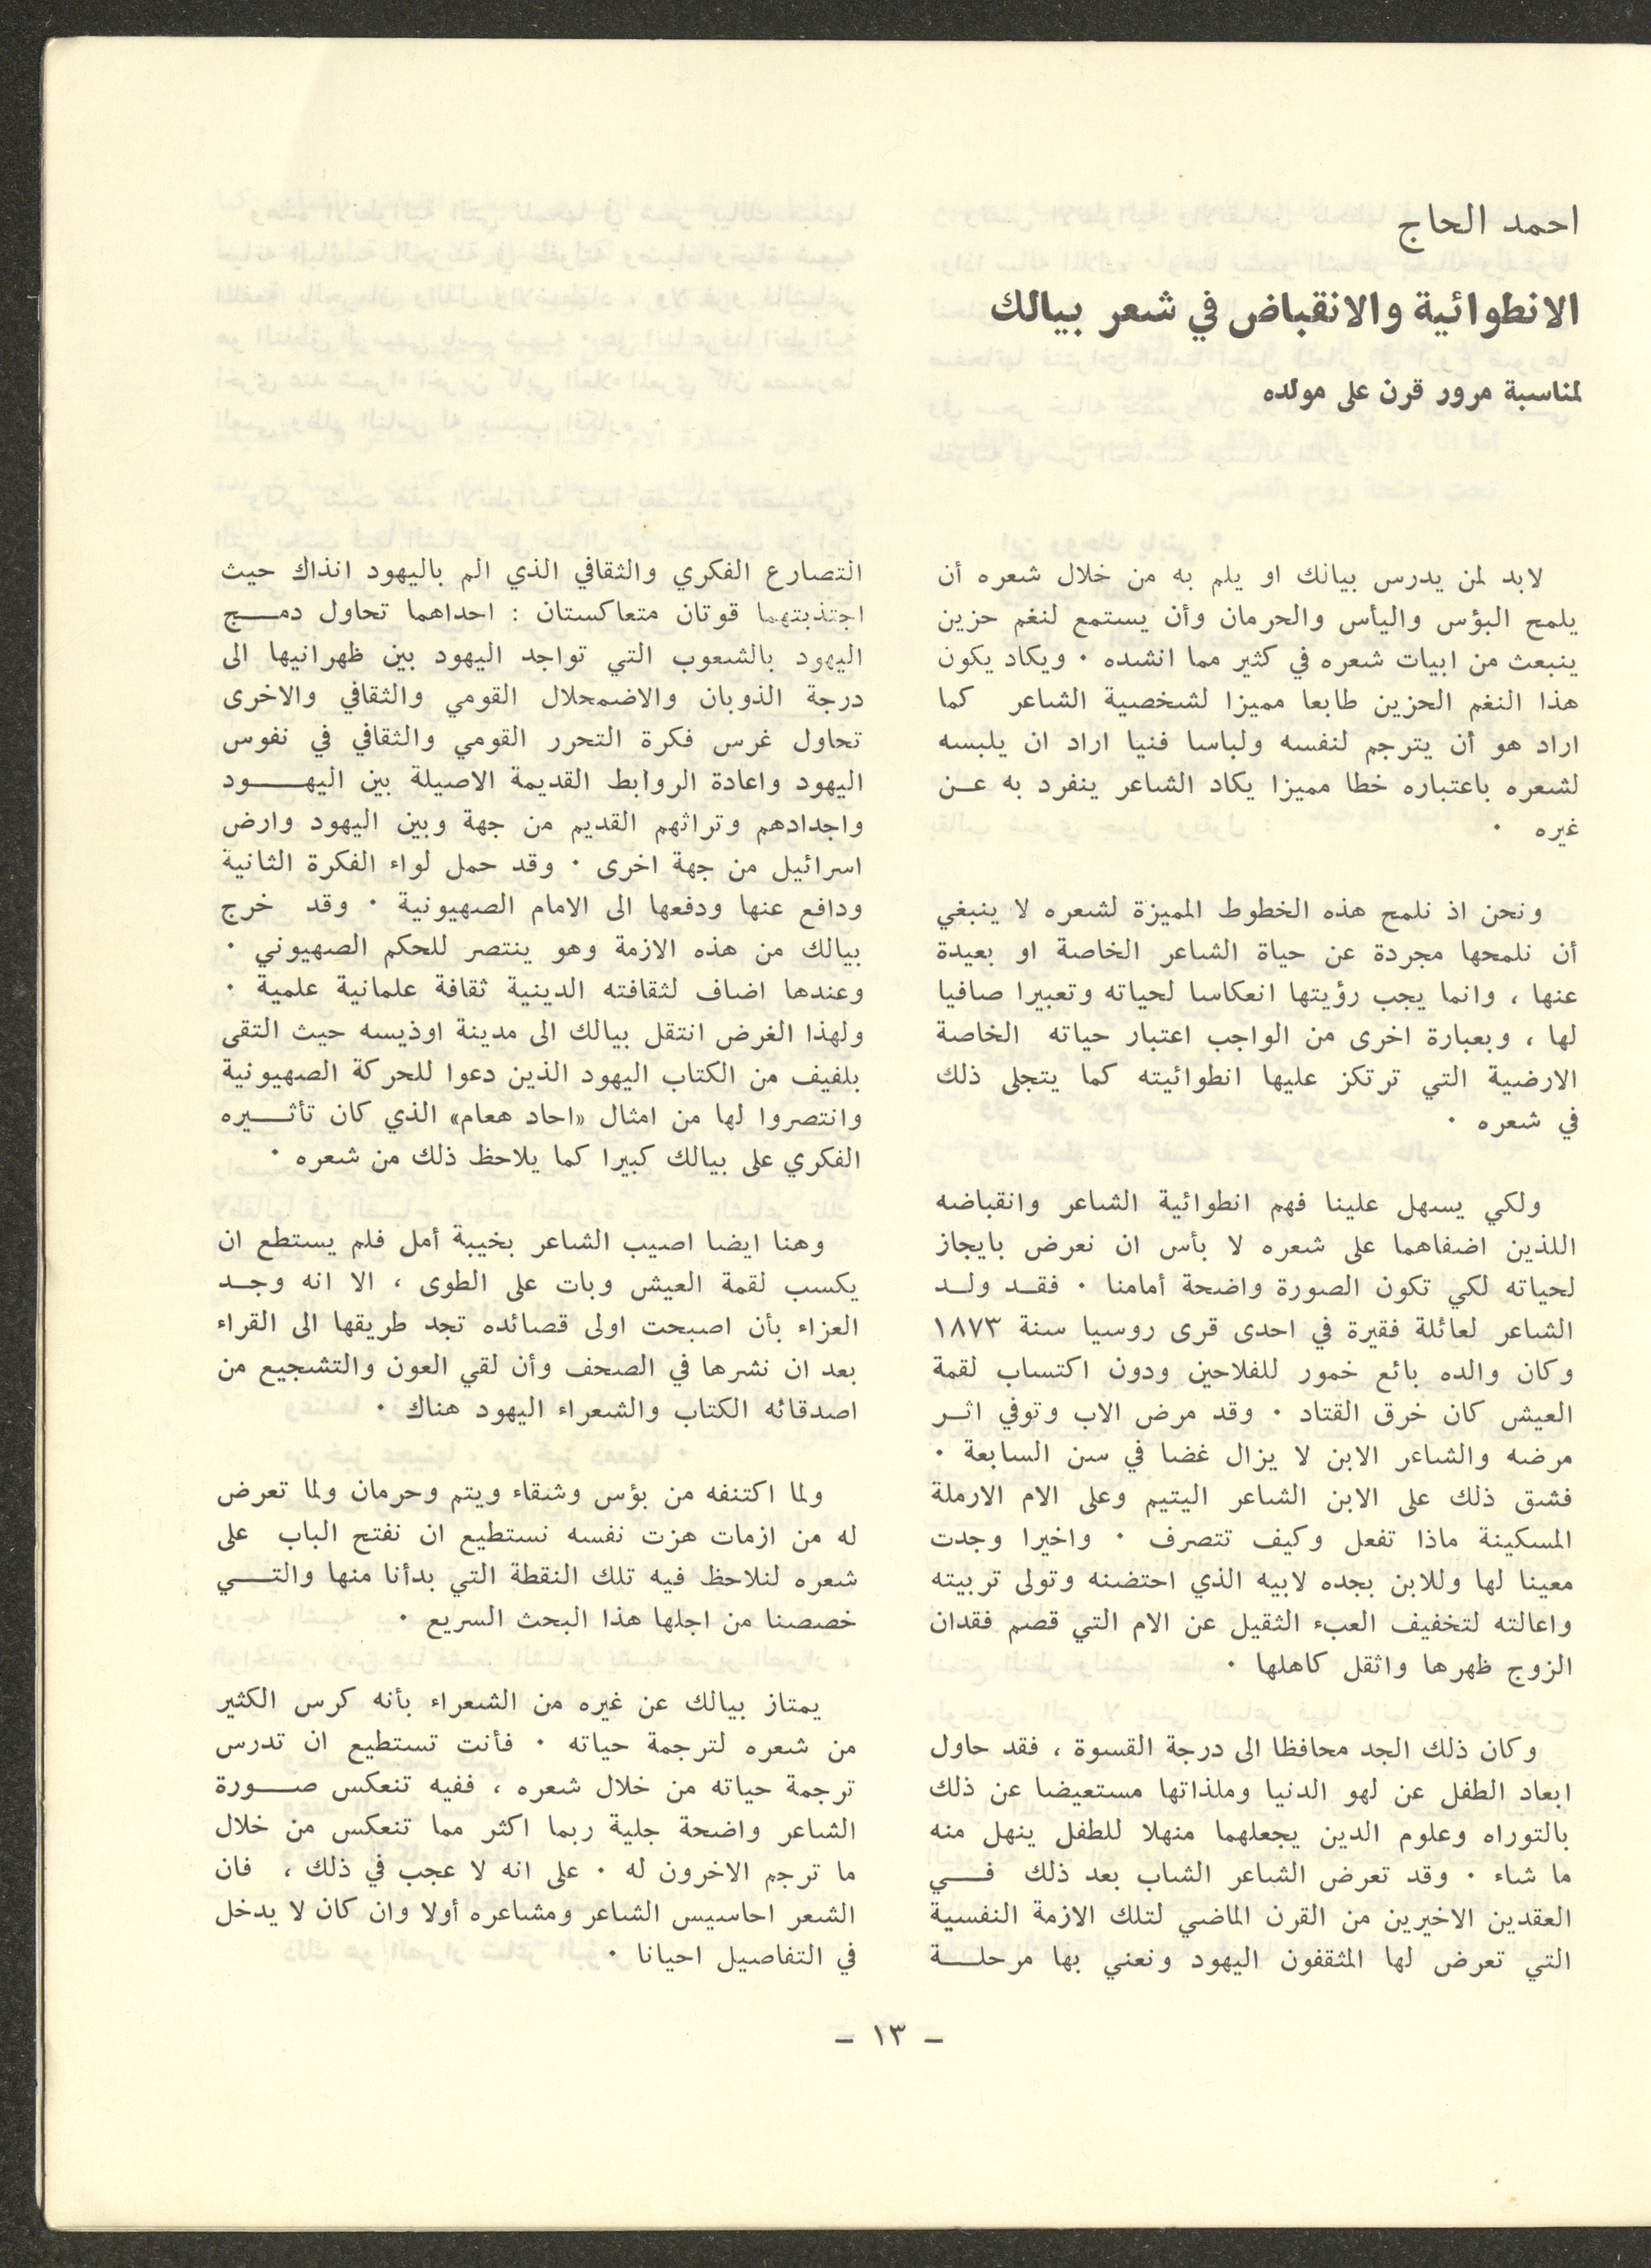 احمد الحاج
الانطوائية والانقباض في شعر بيالك
لمناسبة مرور قرن على مولده
لابد لمن يدرس بيالك او يلم به من خلال شعره أن
يلمح البؤس واليأس والحرمان وأن يستمع لنغم حزين
ينبعث من ابيات شعره في كثير مما انشده ٠ ويكاد يكون
هذا النغم الحزين طابعا مميزا لشخصية الشاعر كما
اراد هو أن يترجم لنفسه ولباسا فنيا اراد ان يلبسه
لشعره باعتباره خطا مميزا يكاد الشاعر ينفرد به عــن
غيره ٠
ونحن اذ نلمح هذه الخطوط المميزة لشعره لا ينبغي
أن نلمحها مجردة عن حياة الشاعر الخاصة او بعيدة
عنها ، وانما يجب رؤيتها انعكاسا لحياته وتعبيرا صافيا
لها ، وبعبارة اخرى من الواجب اعتبار حياته الخاصة
الارضية التي ترتكز عليها انطوائيته كما يتجلى ذلك
في شعره ٠
ولكي يسهل علينا فهم انطوائية الشاعر وانقباضه
اللذين اضفاهما على شعره لا بأس ان نعرض بايجاز
لحياته لكي تكون الصورة واضحة أمامنا ٠ فقــد ولــد
الشاعر لعائلة فقيرة في احدى قرى روسيا سنة ١٨٧٣
وكان والده بائع خمور للفلاحين ودون اكتساب لقمة
العيش كان خرق القتاد ٠ وقد مرض الاب وتوفي اثــر
مرضه والشاعر الابن لا يزال غضا في سن السابعة ٠
فشق ذلك على الابن الشاعر اليتيم وعلى الام الارملة
المسكينة ماذا تفعل وكيف تتصرف ٠ واخيرا وجدت
معينا لها وللابن بجده لابيه الذي احتضنه وتولى تربيته
واعالته لتخفيف العبء الثقيل عن الام التي قصم فقدان
الزوج ظهرها واثقل كاهلها ٠
وكان ذلك الجد محافظا الى درجة القسوة ، فقد حاول
ابعاد الطفل عن لهو الدنيا وملذاتها مستعيضا عن ذلك
بالتوراه وعلوم الدين يجعلهما منهلا للطفل ينهل منه
ما شاء ٠ وقد تعرض الشاعر الشاب بعد ذلك فــــي
العقدين الاخيرين من القرن الماضي لتلك الازمة النفسية
التي تعرض لها المثقفون اليهود ونعني بها مرحلــــة
التصارع الفكري والثقافي الذي الم باليهود انذاك حيث
اجتذبتهما قوتان متعاكستان : احداهما تحاول دمــــج
اليهود بالشعوب التي تواجد اليهود بين ظهرانيها الى
درجة الذوبان والاضمحلال القومي والثقافي والاخرى
تحاول غرس فكرة التحرر القومي والثقافي في نفوس
اليهود واعادة الروابط القديمة الاصيلة بين اليهـــــود
واجدادهم وتراثهم القديم من جهة وبين اليهود وارض
اسرائيل من جهة اخرى ٠ وقد حمل لواء الفكرة الثانية
ودافع عنها ودفعها الى الامام الصهيونية ٠ وقد خرج
بيالك من هذه الازمة وهو ينتصر للحكم الصهيوني ٠
وعندها اضاف لثقافته الدينية ثقافة علمانية علمية ٠
ولهذا الغرض انتقل بيالك الى مدينة اوذيسه حيث التقى
بلفيف من الكتاب اليهود الذين دعوا للحركة الصهيونية
وانتصروا لها من امثال «احاد هعام» الذي كان تأثــــيره
الفكري على بيالك كبيرا كما يلاحظ ذلك من شعره ٠
وهنا ايضا اصيب الشاعر بخيبة أمل فلم يستطع ان
يكسب لقمة العيش وبات على الطوى ، الا انه وجــد
العزاء بأن اصبحت اولى قصائده تجد طريقها الى القراء
بعد ان نشرها في الصحف وأن لقي العون والتشجيع من
اصدقائه الكتاب والشعراء اليهود هناك ٠
ولما اكتنفه من بؤس وشقاء ويتم وحرمان ولما تعرض
له من ازمات هزت نفسه نستطيع ان نفتح الباب على
شعره لنلاحظ فيه تلك النقطة التي بدأنا منها والتــــي
خصصنا من اجلها هذا البحث السريع ٠
يمتاز بيالك عن غيره من الشعراء بأنه كرس الكثير
من شعره لترجمة حياته ٠ فأنت تستطيع ان تدرس
ترجمة حياته من خلال شعره ، ففيه تنعكس صــــورة
الشاعر واضحة جلية ربما اكثر مما تنعكس من خلال
ما ترجم الاخرون له ٠ على انه لا عجب في ذلك ، فان
الشعر احاسيس الشاعر ومشاعره أولا وان كان لا يدخل
في التفاصيل احيانا ٠
– ١٣ –